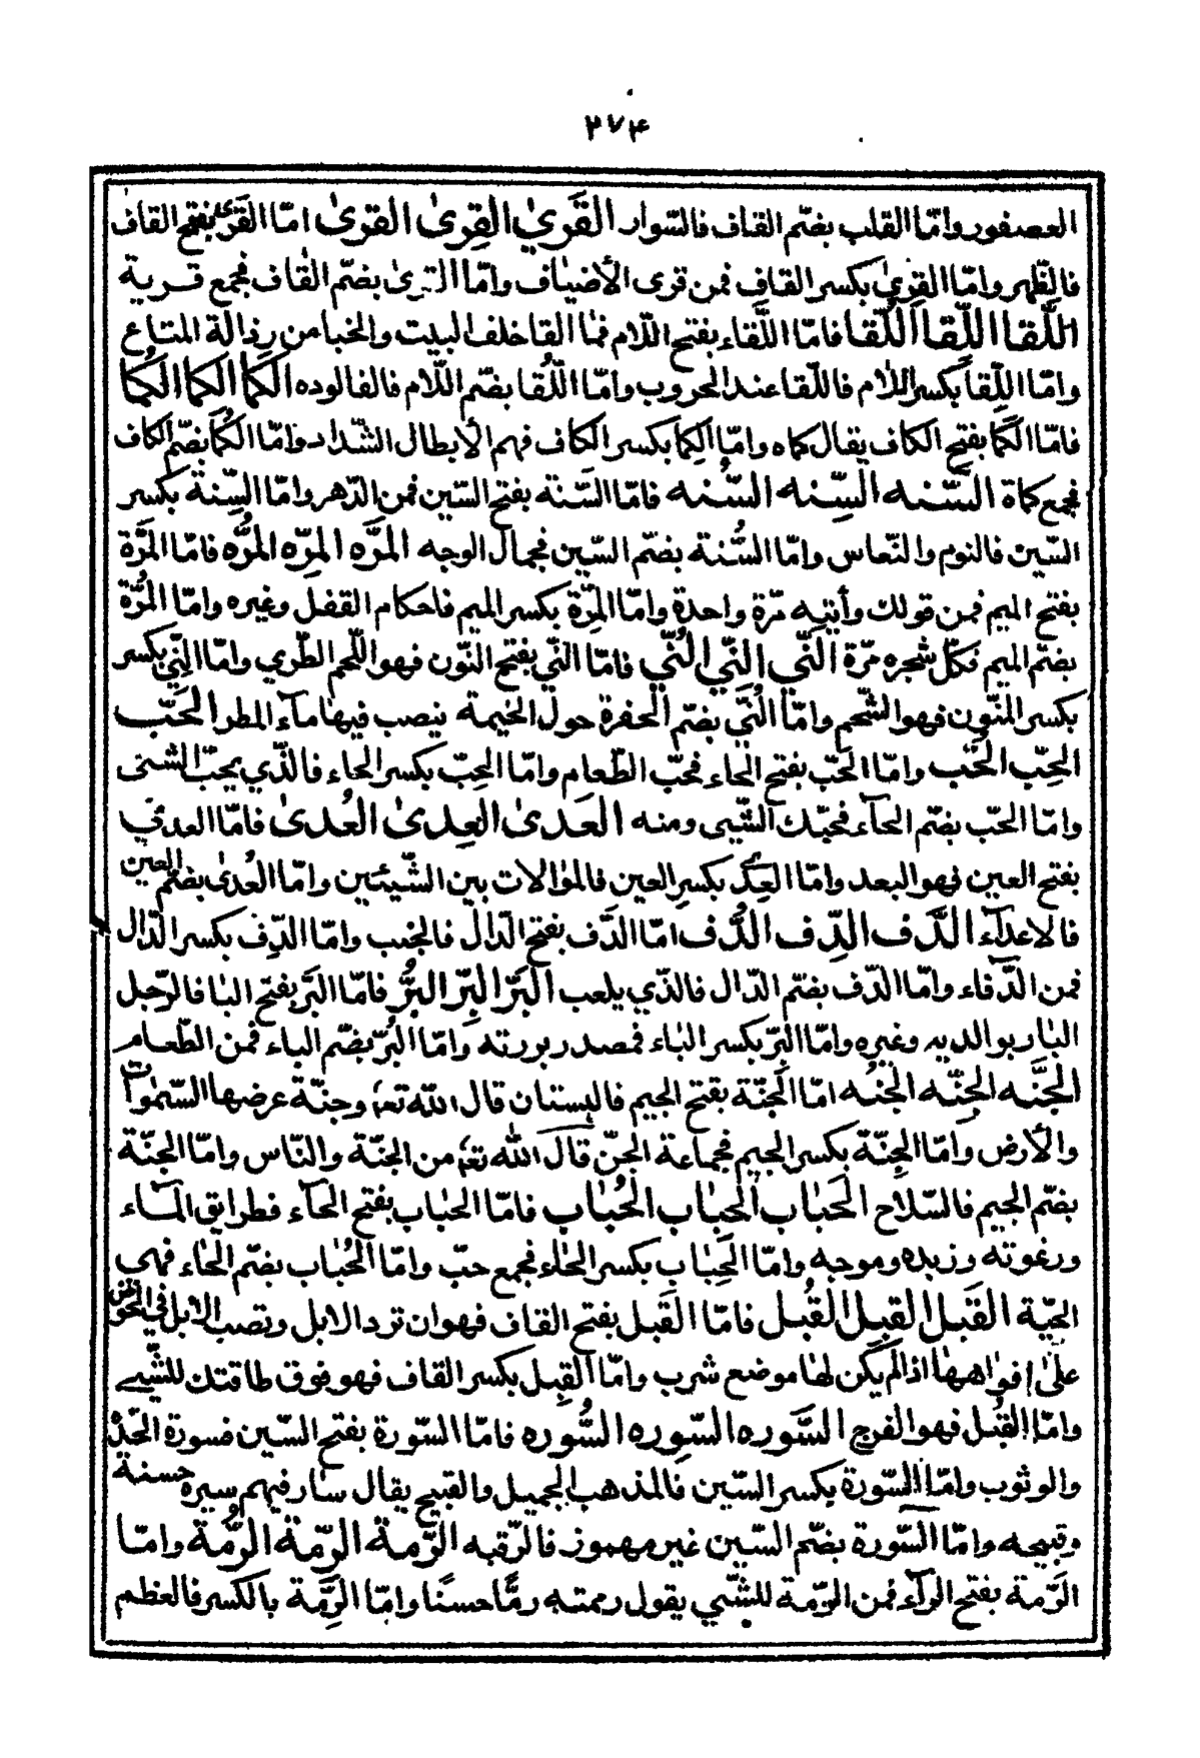 ٢٧۴
العصفور وامّا القلب بضّم القاف فالسّوار القَرىٰ القِرىٰ القرىٰ امّا القَرىٰ بفتح القاف
فالظّهر وامّا القِرىٰ بكسر القاف فمن قرى الأضياف وامّا القرىٰ بضّم القاف فجمع قرية
اللَّقا اللِّقا اللُّقا فامّا اللَّقاء بفتح اللّام فما القا خلف البيت والخبا من رذالة المتاع
وامّا اللِّقا بكسر اللام فاللّقا عند الحروب وامّا اللُّقا بضّم اللّام فالفالوده الكَمٰا الكِمٰا الكُمٰا
فامّا الكَمٰا بفتح الكاف يقال كماه وامّا الكِمٰا بكسر الكاف فهم الأبطال الشّداد وامّا الكُمٰا بضّم الكاف
فجمع كماة السَّنه السِّنه السُّنه فامّا السَّنة بفتح السّين فمن الدّهر وامّا السِّنة بكسر
السّين فالنوم والنّعاس وامّا السُّنة بضّم السّين فجمال الوجه المَرَّه المِرّه المُرُّه فامّا المَرَّة
بفتح الميم فمن قولك وأتيته مّرة واحدة وامّا المِرّة بكسر الميم فاحكام القفل وغيره وامّا المُرُّة
بضّم الميم فكلّ شجره مّرة النَّي النِّي النُّي فامّا النَّي بفتح النّون فهو اللّحم الطّري وامّا النِّي بكسر
بكسر المنّون فهو الشّحم وامّا النُّي بضّم الحفرة حول الخيمة ينصب فيها مآء المطر الحَّب
الحِّب الحُّب وامّا الحَّب بفتح الحاء فحّب الطّعام وامّا الحِّب بكسر الحاء فالذّي يحّب الشئى
وامّا الحّب بضّم الحآء فحبّك الشّيى ومنه العَدىٰ العِدىٰ العُدىٰ فامّا العدىٰ
بفتح العين فهو البعد وامّا العِدىٰ بكسر العين فالموٰالات بين الشّيئين وامّا العُدىٰ بضّم العين
فالاعدآء الدَّف الدِّف الدُّف امّا الدَّف بفتح الدّال فالجنب وامّا الدِّف بكسر الدّال
فمن الدّفاء وامّا الدّف بضّم الدّال فالذّي يلعب البَرّ البِرّ البُرُّ فامّا البَرَّ بفتح البا فالرّجل
البار بوالديه وغيره وامّا البِرّ بكسر الباء فمصدر بررته وامّا البُرّ بضّم الباء فمن الطّعام
الجَنَّه الجِنّه الجُنه امّا الجَنّة بفتح الجيم فالبستان قال اللّه تعٰا وجنّة عرضها السّموات
والأرض وامّا الجِنّة بكسر الجيم فجماعة الجنّ قال اللّه تعٰا من الجنّة والنّاس وامّا الجنّة
بضّم الجيم فالسّلاح الحَبٰاب الحِبٰاب الحُبٰاب فامّا الحبٰاب بفتح الحآء فطرايق المآء
ورغوته وزبده وموجه وامّا الحِبٰاب بكسر الحٰاء فجمع حبّ وامّا الحُبٰاب بضّم الحٰاء فهى
الحيّة القَبل القِبل القُبل فامّا القَبل بفتح القاف فهو ان ترد الابل وتصب الابل في الحوض
علىٰ افوٰاهها اذا لم يكن لها موضع شرب وامّا القِبل بكسر القاف فهو فوق طاقتك للشّيى
وامّا القُبل فهو الفرج السَّوره السِّوره السُّوره فامّا السّورة بفتح السّين فسورة الحّدة
والوثوب وامّا السّورة بكسر السّين فالمذهب الجميل والقبيح يقال سٰار فيهم سيرة حسنة
وقبيحه وامّا السّورة بضّم السّين غير مهموز فالرّقبه الرَّمة الرِّمة الرُّمة وامّا
الرَّمة بفتح الرآء فمن الرّمة للشّيي يقول رممته رمًّا حسنًا وامّا الرِّمّة بالكسر فالعظم